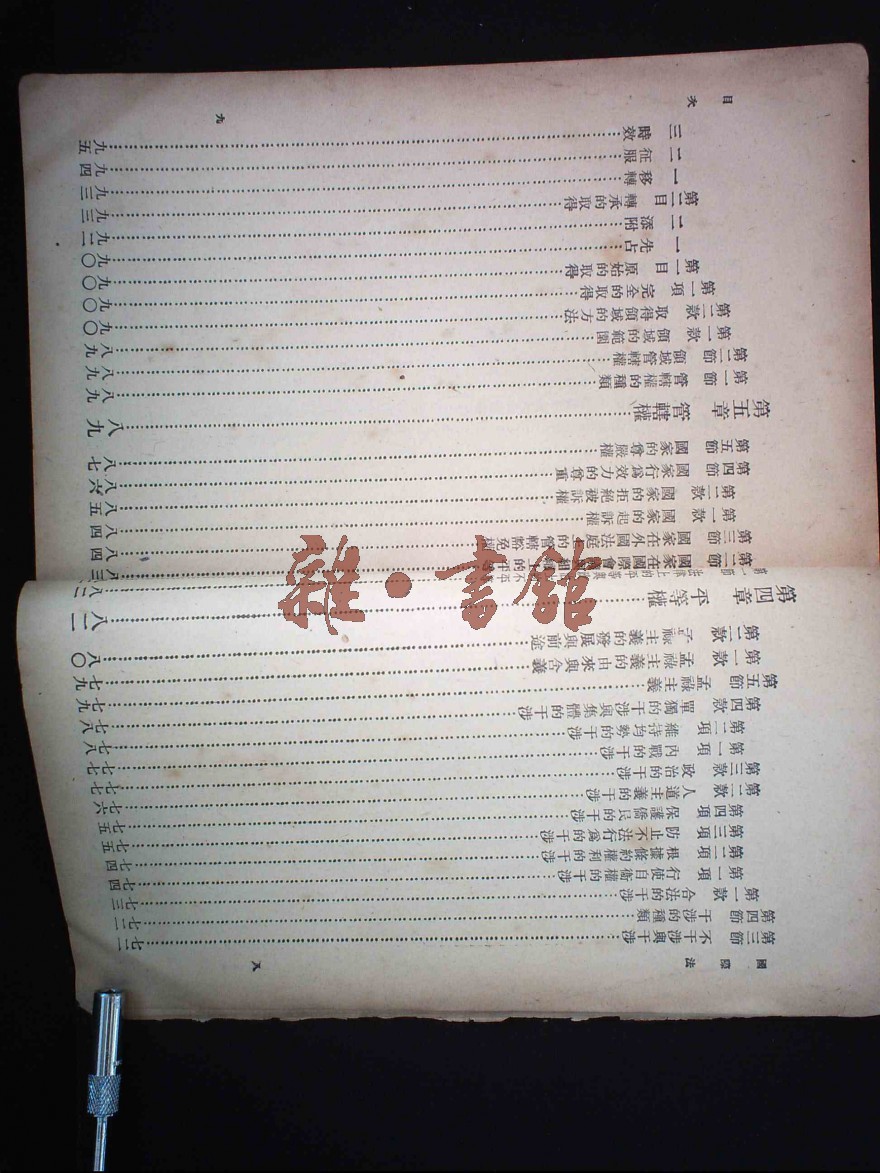 國際法
八
第三節 不干涉與干涉 七二
第四節 干涉的種類 七二
第一款 合法的干涉 七三
第一項 行使自衛權的干涉 七四
第二項 根據條約權利的干涉 七四
第三項 防止不法行為的干涉 七五
第四項 保護僑民的干涉 七五
第二款 人道主義的干涉 七六
第三款 政治的干涉 七七
第一項 內戰的干涉 七七
第二項 維持均勢的干涉 七八
第四款 單獨的干涉與集體的干涉 七八
第五節 孟祿主義 七九
第一款 孟祿主義的由來與含義 七九
第二款 孟祿主義的發展與前途 八〇
第四章 平等權 八二
第一節 八二
第二節 國家在國際會議與組織上的平等 八三
第三節 國家在外國法庭上的管轄豁免權 八四
第一款 國家的起訴權 八四
第二款 國家的拒絕被訴權 八五
第四節 國家行為效力的尊重 八六
第五節 國家的尊嚴權 八七
第五章 管轄權 八九
第一節 管轄權的種類 八九
第二節 領域管轄權 八九
第一款 領域的範圍 八九
第二款 取得領域的方法 九〇
第一項 完全的取得 九〇
第一目 原始的取得 九〇
一 先占 九〇
二 添附 九二
第二目 轉承的取得 九三
一 移轉 九三
二 征服 九四
三 時效 九五
目次
九
雜·書館